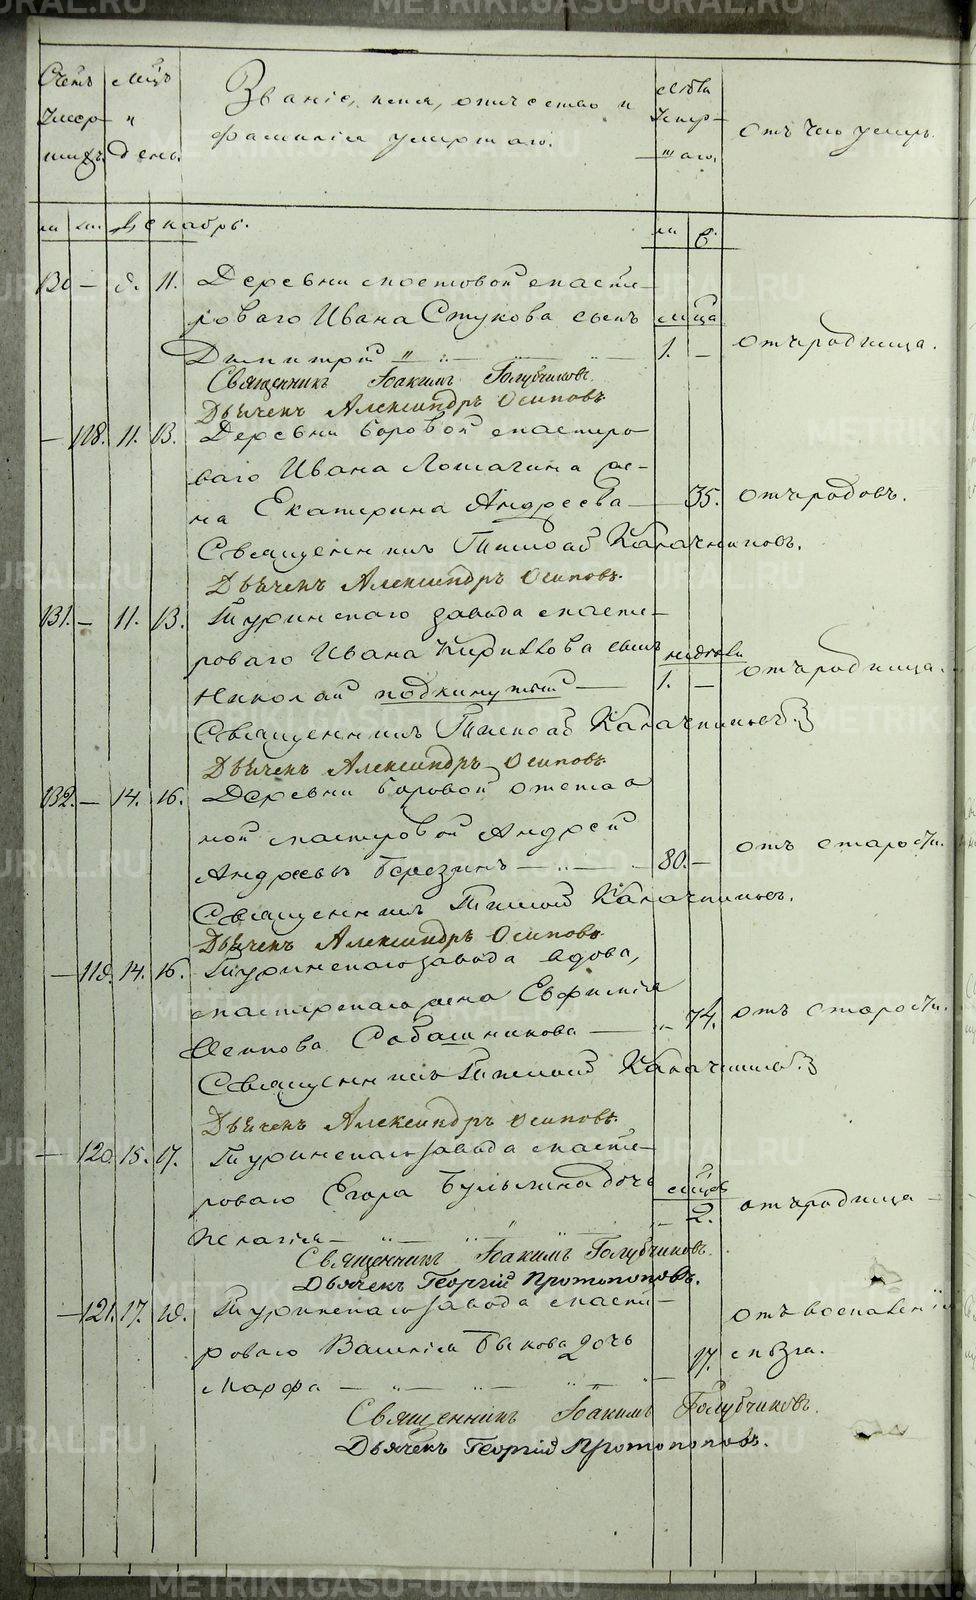 Счетъ Умер- шихъ.
Мцъ и День.
Званіе, имя, отчество и
фамилія умершаго.
Лѣта Умер- шаго.
отъ чего умеръ.
м ж Декабрь. м ж
130 — 11. Деревни мастe-
роваго Ивана Стукова сынъ мцa
Димитрій 1. — отъ родимца.
Священникъ Іоакимъ Голубчиковъ.
Дьячекъ Александръ Осиповъ
— 11. 13. Деревни Боровой мастеро-
ваго Ивана Лошагина же-
на Екатерина Андреева — 35. отъ родовъ.
Священникъ Калачниковъ.
Дьячекъ Александръ Осиповъ.
131. — 11. 13. Туринскаго завода масте-
роваго Ивана Кирилова сынъ недѣли
Николай подкинутый — 1. — отъ родимца.
Священникъ Калачниковъ.
Дьячекъ Александръ Осиповъ
132. — 14. 16. Деревни Боровой отстав
ной мастеровой Андрей
Андреевъ Березинъ — 80. — отъ старости.
Священникъ Калачниковъ.
Дьячекъ Александръ Осиповъ
— 14. 16. Туринскаго завода вдова,
мастерская жена Евфимія
Осипова Сабашникова — 74. отъ старости.
Священникъ Калачниковъ
Дьячекъ Александръ Осиповъ.
— 120. 15. 17. Туринскаго завода масте-
роваго Егора дочь мцѣв
Пелагія — 2. отъ родимца —
Священникъ Іоакимъ Голубчиковъ.
Дьячекъ Георгій Протопоповъ.
— 121. 17. Туринскаго завода масте-
роваго Василія Быкова дочь
Марфа — 17. отъ воспаленія
мозга.
Священникъ Іоакимъ Голубчиковъ.
Дьячекъ Георгій Протопоповъ.
METRIKI.GASO-URAL.RU